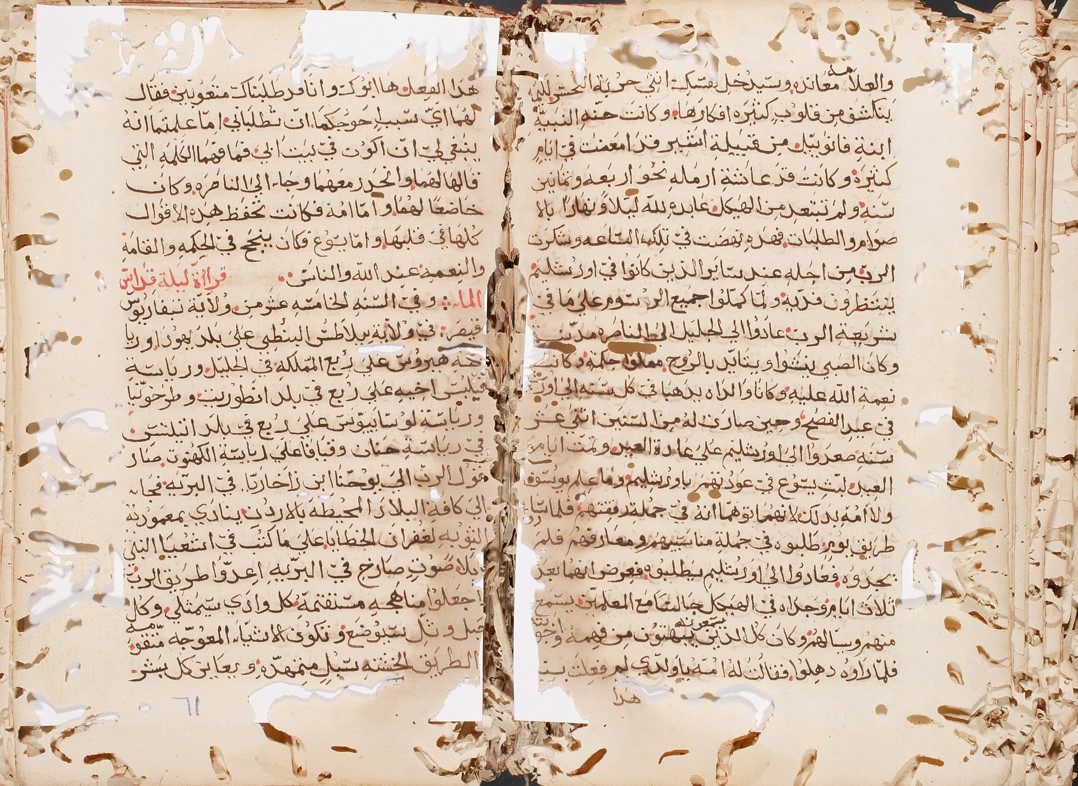 والعلامه معانده وسيدخل بنفسك انتي حربه
ينكشف من قلوب كثيره افكارها وكانت حنه النبيه
ابنة فانوييل من قبيلة اشير قد امعنت في ايام
كثيره وكانت قد عاشت ارمله نحو اربعه وثمانين
سنه ولم تبتعد من الهيكل عابده لله ليلا ونهارا بالا
صوام والطلبات فهده نهضت في تلك الساعه وشكرت
الرب من اجله عند سائر الدين كانوا في اورشليم
ينتظرون فديه ولما كملوا جميع الرسوم علي ما في
شريعة الرب عادوا الي الجليل الي الناصره مدينتهم
وكان الصبي ينشوا ويتايد بالروح مملوا حكمه وكانت
نعمة الله عليه وكانوا والداه يدهبا في كل سنه الي اور
في عيد الفصح وحين صارت له من السنين اثني عشر
سنه صعدوا الي اورشليم علي عادة العيد وتمت ايام
العيد لبت يسوع في عودتهم باورشليم وما علم يوسف
ولا امه بدلك لانهما توهما انه في جملة رفقتهم فلما سارا
طريق يوم طلبوه في جملة مناسبيهم ومعارفهم فلم
يجدوه فعادوا الي اورشليم يطلبوه فعرض انهما بعد
ثلاث ايام وجداه في الهيكل جالسا مع المعلمين يسمع
منهم وسالهم وكان كل الدين يسمعونه يبهتون من فهمه
فلما راوه دهلوا فقالت له امه يا ولدي لم فعلت بنا
هدا
هدا الفعل ها ابوك وانا قد طلبناك متعوبين فقال
لهما اي سبب احوجكما ان تطلباني اما علمتما انه
ينبغي لي ان اكون في بيت ابي فما فهما الكلمه التي
قالها لهما وانحدر معهما وجاء الي الناصره وكان
خاضعا لهما واما امه فكانت تحفظ هده الاقوال
كلها في قلبها واما يسوع فكان ينجح في الحكمه والقامه
والنعمه عند الله والناس قراة ليلة قداس
الما وفي السنه الخامسه عشر من ولاية تيفاريوس
قيصر في ولاية بيلاطس البنطي علي بلد يهودا وريا
سة هيرودس علي ربع المملكه في الجليل ورياسة
فيلبس اخيه علي ربع في بلد انطوريت وطرخونيا
ورياسة لوسانيوس علي ربع في بلد ابيلنس
في رياسة حنان وقيافا علي رياسة الكهنوت صار
قول الرب الي يوحنا ابن زاخاريا في البريه فجا
الي كافة البلاد المحيطه بالاردن ينادي بمعمودية
التوبه لغفران الخطايا علي ما كتب في اشعيا النبي
صوت صارخ في البريه اعدوا طريق الرب
اجعلوا مناهجه مستقيمه كل وادي سيمتلي وكل
جبل وتل سيوضع وتكون الاشياء المعوجه متقومه
الطريق الخشنه سبل متمهده ويعاين كل بشر
٦١